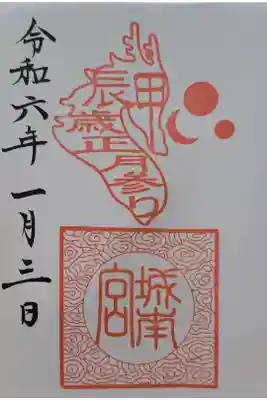 甲辰歳正月参り
城南
宮
令和六年一月三日